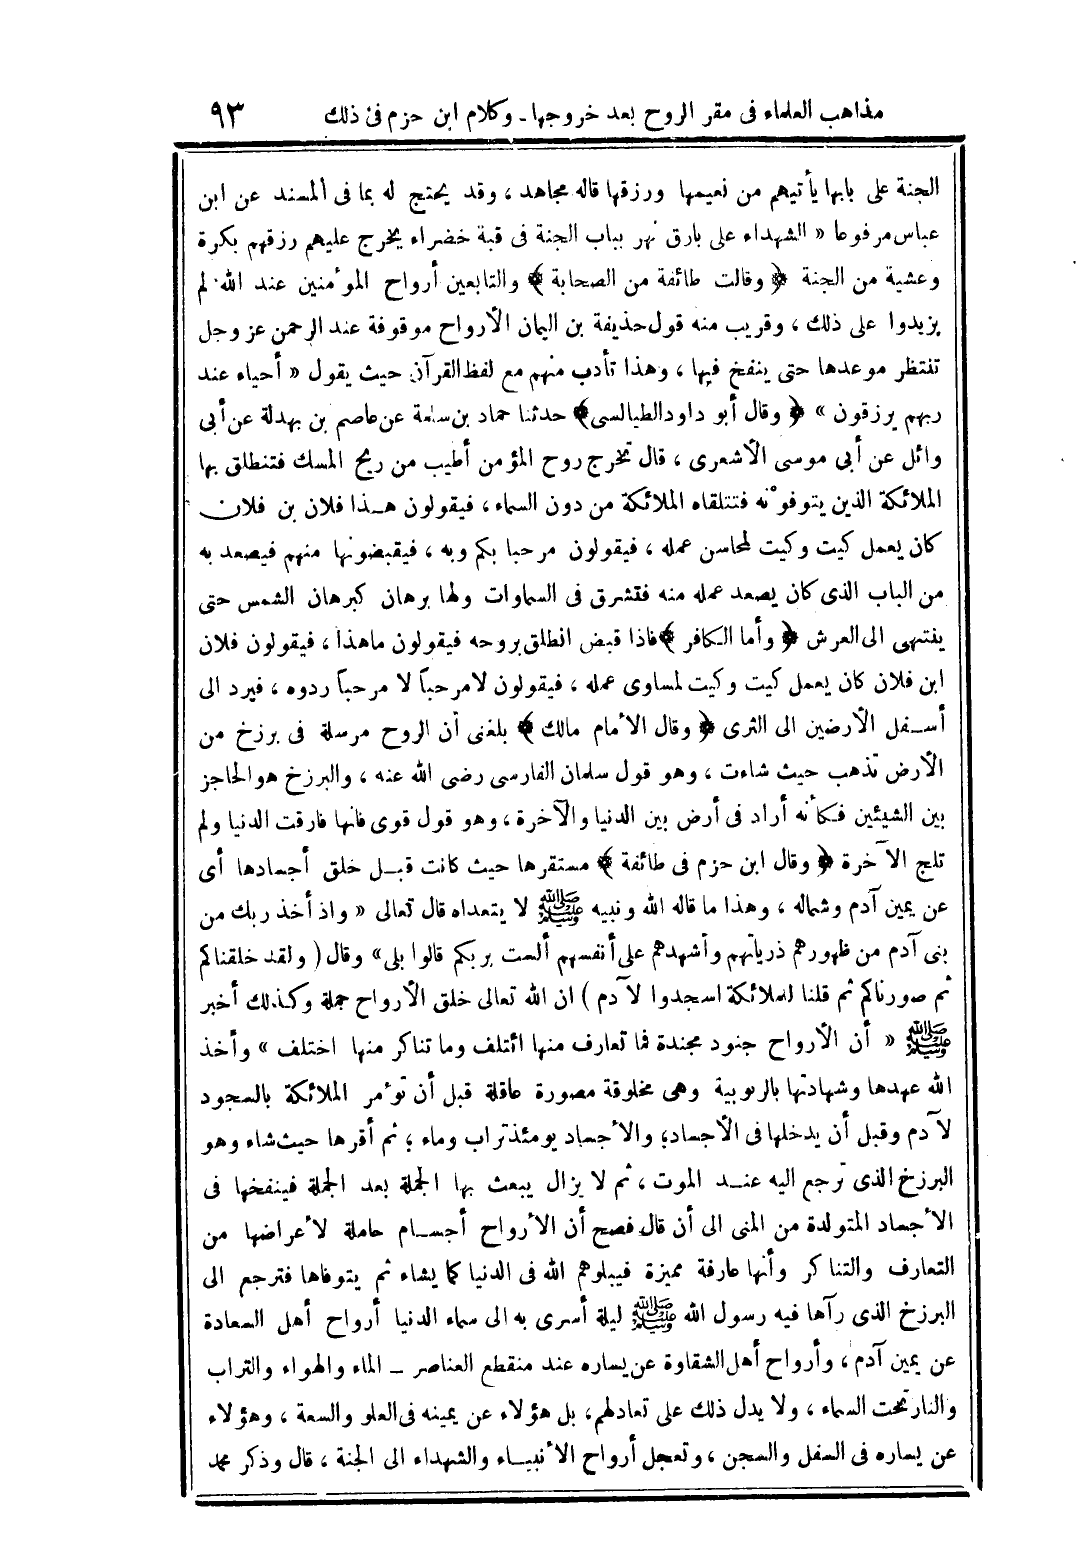 مذاهب العلماء فى مقر الروح بعد خروجها - وكلام ابن حزم فى ذلك ٩٣
الجنة على بابها يأتيهم من نعيمها ورزقها قاله مجاهد ، وقد يحتج له بما فى المسند عن ابن
عباس مرفوعا « الشهداء على بارق نهر بباب الجنة فى قبة خضراء يخرج عليهم رزقهم بكرة
وعشية من الجنة ﴿ وقالت طائفة من الصحابة ﴾ والتابعين أرواح المؤمنين عند الله . لم
يزيدوا على ذلك ، وقريب منه قول حذيفة بن اليمان الأرواح موقوفة عند الرحمن عز وجل
تنتظر موعدها حتى ينفخ فيها ، وهذا تأدب منهم مع لفظ القرآن حيث يقول « أحياء عند
ربهم يرزقون » ﴿ وقال أبو داود الطيالسى ﴾ حدثنا حماد بن سلمة عن عاصم بن بهدلة عن أبى
وائل عن أبى موسى الأشعرى ، قال تخرج روح المؤمن أطيب من ريح المسك فتنطلق بها
الملائكة الذين يتوفونه فتتلقاه الملائكة من دون السماء ، فيقولون هـذا فلان بن فلان
كان يعمل كيت وكيت لمحاسن عمله ، فيقولون مرحبا بكم وبه ، فيقبضونها منهم فيصعد به
من الباب الذى كان يصعد عمله منه فتشرق فى السماوات ولها برهان كبرهان الشمس حتى
ينتهى الى العرش ﴿ وأما الكافر ﴾ فاذا قبض انطلق بروحه فيقولون ماهذا ، فيقولون فلان
ابن فلان كان يعمل كيت وكيت لمساوى عمله ، فيقولون لا مرحباً لا مرحباً ردوه ، فيرد الى
أسـفل الأرضين الى الثرى ﴿ وقال الأمام مالك ﴾ بلغنى أن الروح مرسلة فى برزخ من
الأرض تذهب حيث شاءت ، وهو قول سلمان الفارسى رضى الله عنه ، والبرزخ هو الحاجز
بين الشيئين فكأنه أراد فى أرض بين الدنيا والآخرة ، وهو قول قوى فانها فارقت الدنيا ولم
تلج الآخرة ﴿ وقال ابن حزم فى طائفة ﴾ مستقرها حيث كانت قبـل خلق أجسادها أى
عن يمين آدم وشماله ، وهذا ما قاله الله ونبيه ﷺ لا يتعداه قال تعالى « واذ أخذ ربك من
بنى آدم من ظهورهم ذرياتهم وأشهدهم على أنفسهم ألست بربكم قالوا بلى » وقال ( ولقد خلقناكم
ثم صورناكم ثم قلنا للملائكة اسجدوا لآدم ) ان الله تعالى خلق الأرواح جملة وكذلك أخبر
ﷺ « أن الأرواح جنود مجندة فما تعارف منها ائتلف وما تناكر منها اختلف » وأخذ
الله عهدها وشهادتها بالربوبية وهى مخلوقة مصورة عاقلة قبل أن تؤمر الملائكة بالسجود
لآدم وقبل أن يدخلها فى الأجساد ؛ والأجساد يومئذ تراب وماء ؛ ثم أقرها حيث شاء وهو
البرزخ الذى ترجع اليه عنـد الموت ، ثم لا يزال يبعث بها الجملة بعد الجملة فينفخها فى
الأجساد المتولدة من المنى الى أن قال فصح أن الأرواح أجسـام حاملة لأعراضها من
التعارف والتناكر وأنها عارفة مميزة فيبلوهم الله فى الدنيا كما يشاء ثم يتوفاها فترجع الى
البرزخ الذى رآها فيه رسول الله ﷺ ليلة أسرى به الى سماء الدنيا أرواح أهل السعادة
عن يمين آدم ، وأرواح أهل الشقاوة عن يساره عند منقطع العناصر ـ الماء والهواء والتراب
والنار تحت السماء ، ولا يدل ذلك على تعادلهم ، بل هؤلاء عن يمينه فى العلو والسعة ، وهؤلاء
عن يساره فى السفل والسجن ، وتعجل أرواح الأنبيـاء والشهداء الى الجنة ، قال وذكر محمد